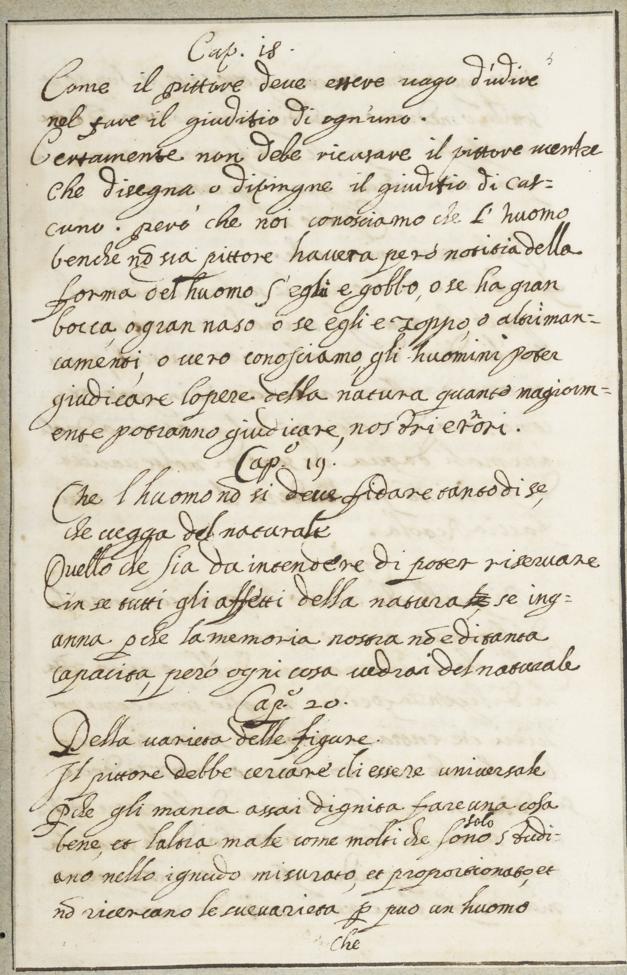 Cap. 18.
Come il pittore deve essere vago d'udire
nel fare il giuditio di ogn'uno.
Certamente non debe ricusare il pittore mentre
che disegna o dipingne il giuditio di cas=
cuno. però che noi conosciamo che l'huomo
benche nō sia pittore havera però notitia della
forma del huomo s'egli e gobbo, o se ha gran
bocca o gran naso o se egli e zoppo, o altri man=
camenti, o vero conosciamo, gli huomini poter
giudicare l'opere della natura quanto magiorm=
ente potranno giudicare, nostri errori.
Capº. 19.
Che l'huomo nō si deve fidare tanto di se,
che vegga del naturale
Quello che sia da intendere di poter riservare
in se tutti gli affetti della natura se ing=
anna p che la memoria nostra nō e di tanta
capacita, però ogni cosa vedrai del naturale
Capº. 20.
Della varieta delle figure.
Il pittore debbe cercare di essere universale
Pche gli manca assai dignita fare una cosa
bene, et l'altra male come molti che solo sono studi=
ano nello ignudo misurato, et proportionato, et
nō ricercano le sue varieta p può un huomo
che